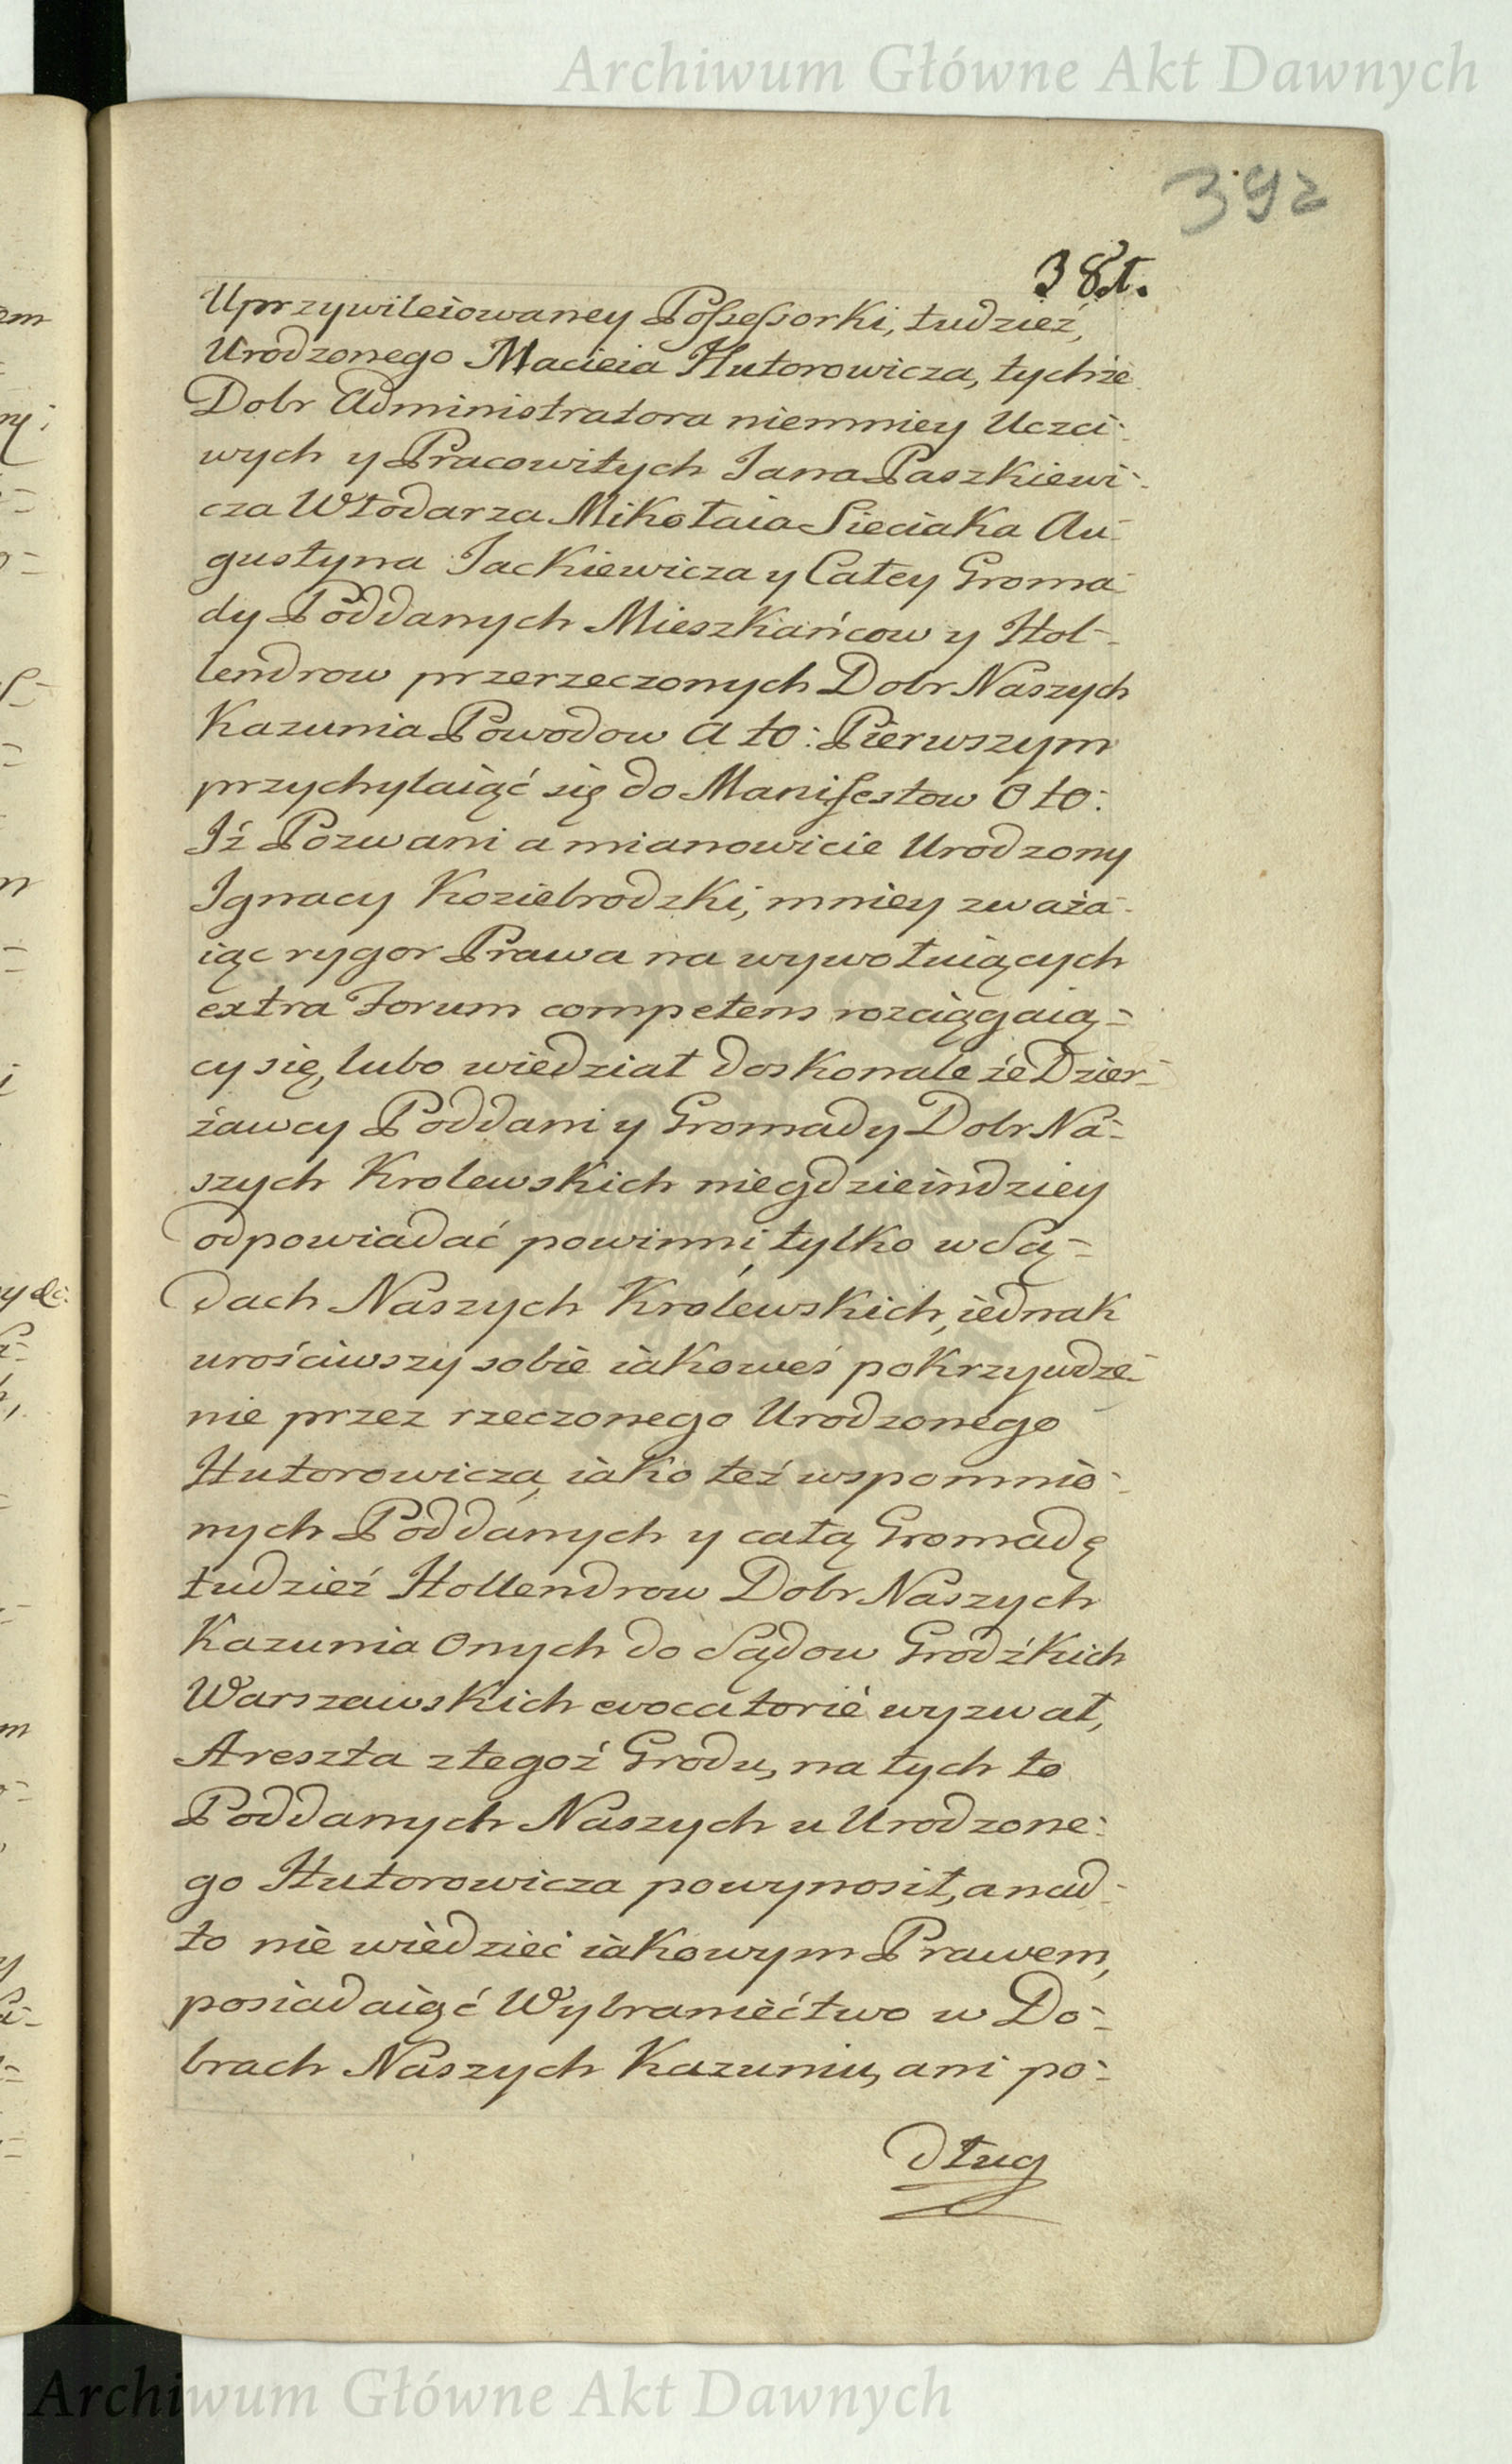 Archiwum Główne Akt Dawnych
392
Uprzywileiowaney Possessorki, tudzież,
Urodzonego Macieia Hutorowicza, tychże
Dobr Administratora niemniey Uczci-
wych y Pracowitych Jana Paszkiewi-
cza Włodarza Mikołaia Sieciaka Au-
gustyna Jackiewicza y Całey Groma-
dy Poddanych Mieszkańcow y Hol-
lendrow przerzeczonych Dobr Naszych
Kazunia Powodow a to: Pierwszym
przychylaiąć się do Manifestow O to:
Iż Pozwani a mianowicie Urodzony
Ignacy Koziebrodzki, mniey zważa-
iąc rygor Prawa na wywołuiących
extra Forum competens rozciągaią-
cy się, lubo wiedział doskonale że Dzier-
żawcy Poddani y Gromady Dobr Na-
szych Krolewskich niegdzieindziey
odpowiadać powinni, tylko w Są-
dach Naszych Krolewskich, iednak
urościwszy sobie iakoweś pokrzywdze-
nie przez rzeczonego Urodzonego
Hutorowicza, iako też wspomnio-
nych Poddanych y całą Gromadę
tudzież Hollendrow Dobr Naszych
Kazunia Onych do Sądow Grodźkich
Warszawskich evocatorie wyzwał,
Areszta z tegoż Grodu, na tych to
Poddanych Naszych u Urodzone-
go Hutorowicza powynosił, a nad-
to nie wiedzieć iakowym Prawem,
posiadaiąć Wybraniećtwo w Do-
brach Naszych Kazuniu, ani po-
dług
Archiwum Główne Akt Dawnych